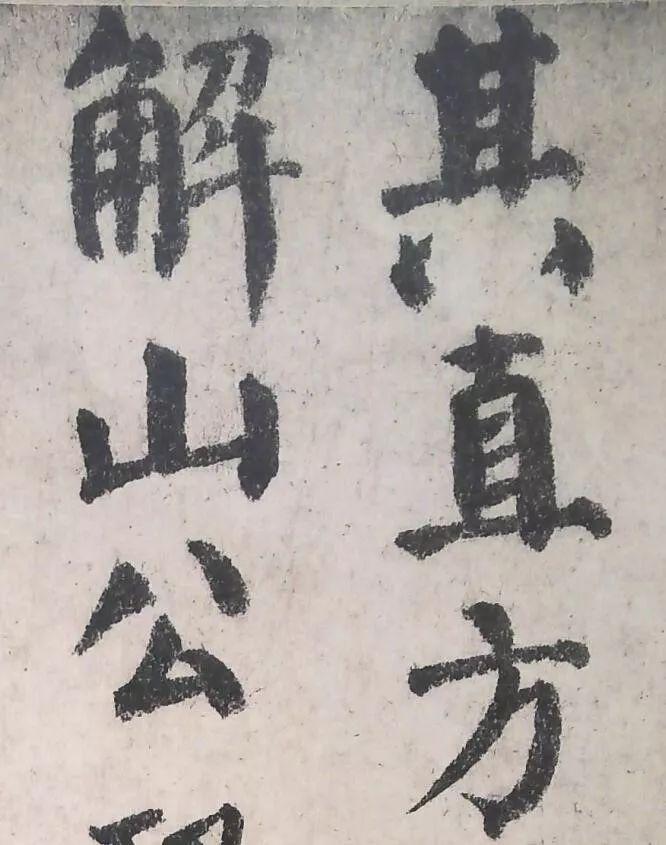 其直方
解山公